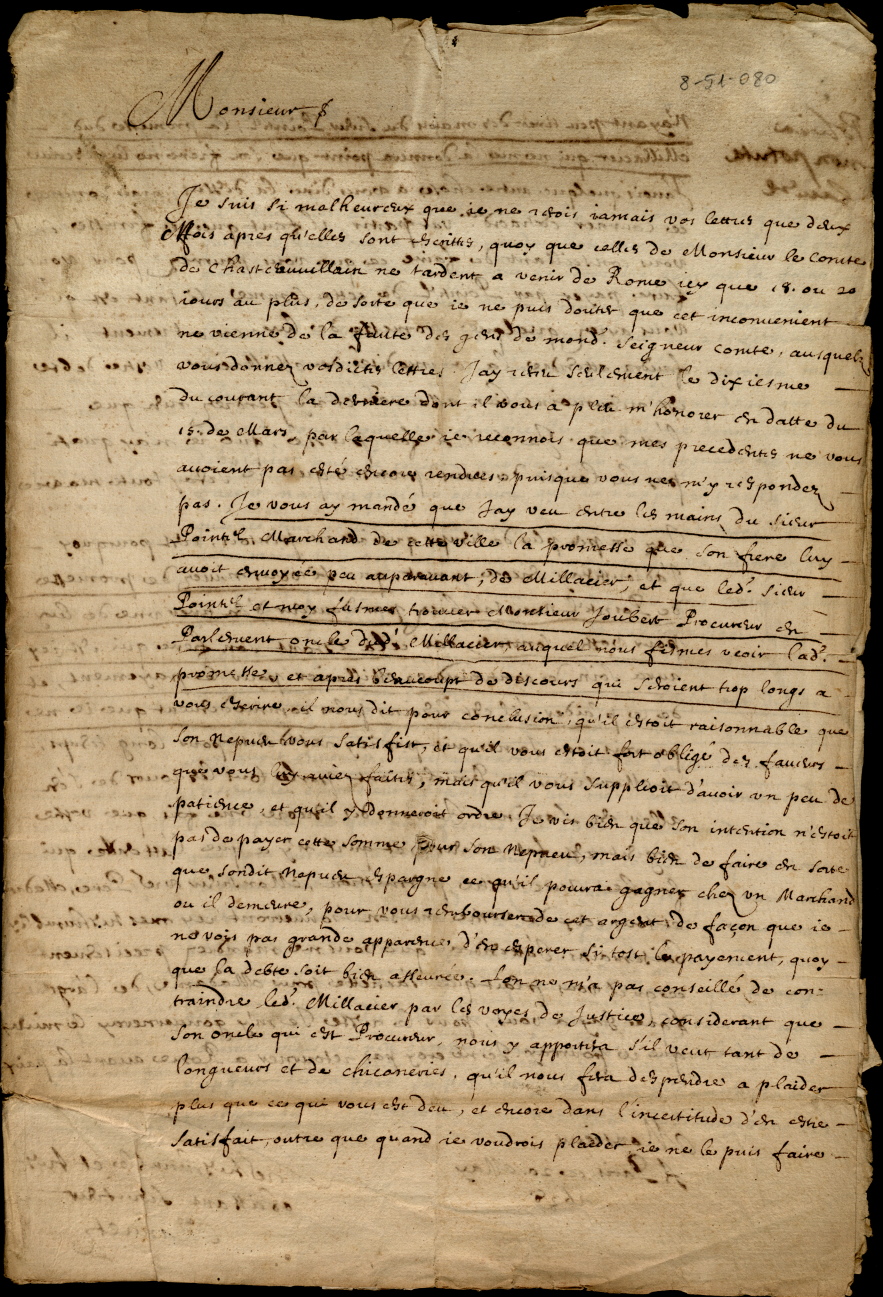 8-51-080
Monsieur
Je suis si malheureux que ie ne reçois iamais vos lettres que deux
Mois apres qu'elles sont escrittes, quoy que celles de Monsieur le Comte
de Chasteauvillain ne tardent a venir de Rome icy que 18. ou 20
iours au plus, de sorte que ie ne puis douter que cet inconvenient
ne vienne de la faute des gens de mond.t Seigneur Comte, ausquels
vous donnez vosdictes lettres. J'ay receu seulement le dixiesme
du courant la derniere dont il vous a pleu m'honorer en datte du
15. de Mars, par laquelle ie reconnois que mes precedentes ne vous
avoient pas esté encore rendues, puisque vous ne m'y respondez
pas. Je vous ay mandé que J'ay veu entre les mains du sieur
Marchand de cette ville la promesse que son frere luy
avoit envoyée peu auparavant, de Millacier, et que led. sieur
et moy fusmes trouver Monsieur Joubert Procureur en
Parlement, oncle dud. Millacier, auquel nous fismes veoir lad.
promesse, et apres beaucoup de discours qui seroient trop longs a
vous escrire, il nous dit pour conclusion, qu'il estoit raisonnable que
son nepueu vous satisfist, et qu'il vous estoit fort obligé des faveurs
que vous luy aviez faites, mais qu'il vous supplioit d'avoir un peu de
patience, et qu'il y donneroit ordre. Je vis bien que son intention n'estoit
pas de payer cette somme pour son Nepueu, mais bien de faire en sorte
que sondit Nepueu espargne ce qu'il pourra gagner chez un Marchand
ou il demeure, pour vous rembourser de cet argent, de façon que ie
ne voys pas grande apparence d'en esperer si tost le payement, quoy
que la debte soit bien asseurée. L'on ne m'a pas conseillé de con-
traindre led. Millacier par les voyes de Justice, considerant que
son oncle qui est Procureur, nous y apportera s'il veut tant de
longueurs et de chicaneries, qu'il nous fera despendre a plaider
plus que ce qui vous est deu, et encore dans l'incertitude d'en estre
satisfait, outre que quand ie voudrois plaider, ie ne le puis faire